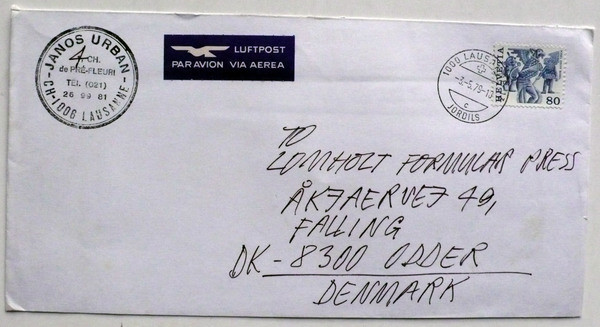 JANOS URBAN
4 CH.
de PRÉ-FLEURI
TÉL. (021)
26 99 81
CH-1006 LAUSANNE
LUFTPOST
PAR AVION VIA AEREA
1000 LAUS
-3.-5.79-12
c
JORDILS
HELVETIA
80
TO
LOMHOLT FORMULAR PRESS
ÅKJAERVEJ 49,
FALLING
DK-8300 ODDER
DENMARK